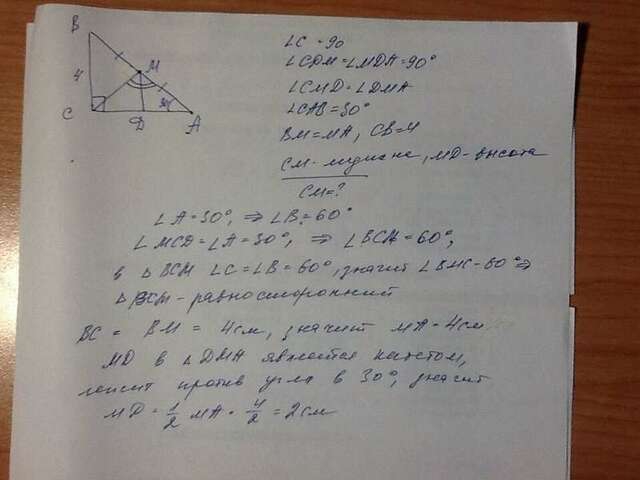 B
M
4
30°
C
D
A
∠C = 90
∠CDM = ∠MDA = 90°
∠CMD = ∠DMA
∠CAB = 30°
BM = MA, CB = 4
CM - медиана, MD - высота
CM = ?
∠A = 30°, ⇒ ∠B = 60°
∠MCD = ∠A = 30°, ⇒ ∠BCM = 60°,
в △BCM ∠C = ∠B = 60°, значит ∠BMC - 60° ⇒
△BCM - равносторонний
BC = BM = 4см, значит MA = 4см
MD в △DMA является катетом,
лежит против угла в 30°, значит
MD = 1/2 MA = 4/2 = 2см